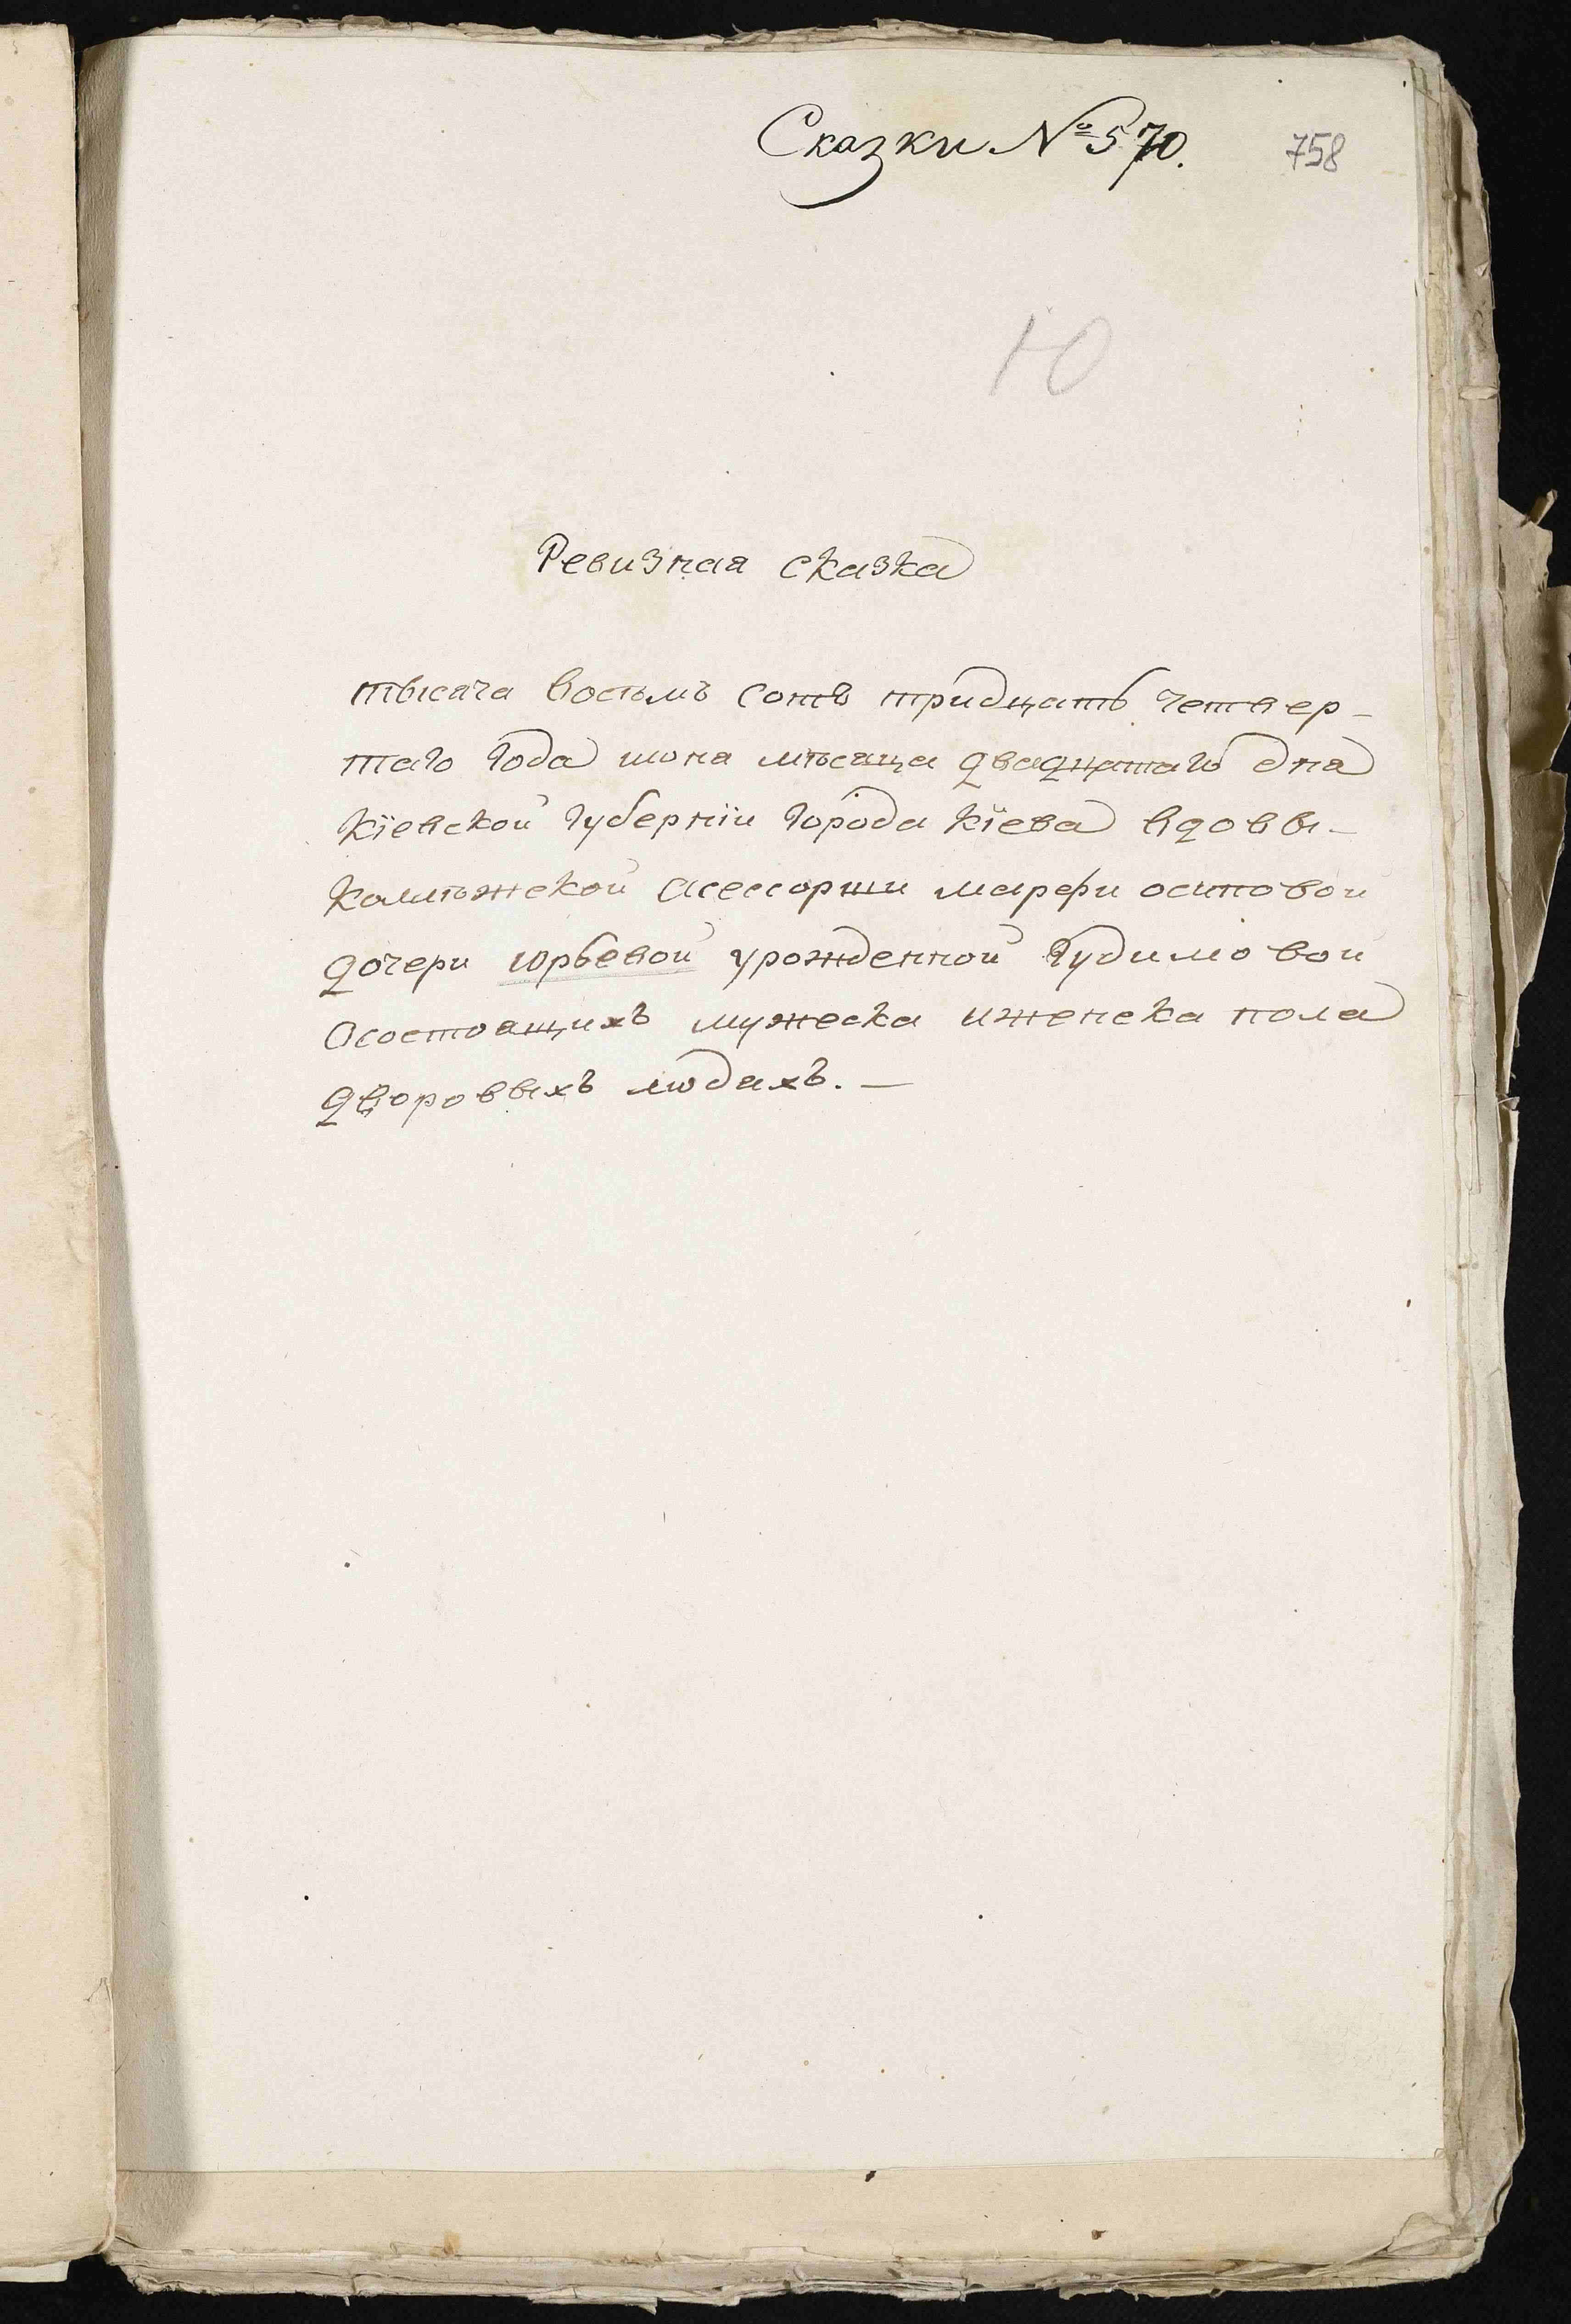 Сказки № 570.
758
Ю
Ревизная сказка
тысяча восьмъ сотъ тридцать четвер-
таго года июня мѣсяца двадцятаго дня
Кїевской губернїи города Кїева вдовы-
колѣжской асессорши марфи осиповой
дочери юрьевой урожденной Гудимовой
осостоящихъ мужеска иженска пола
дворовыхъ людяхъ.—